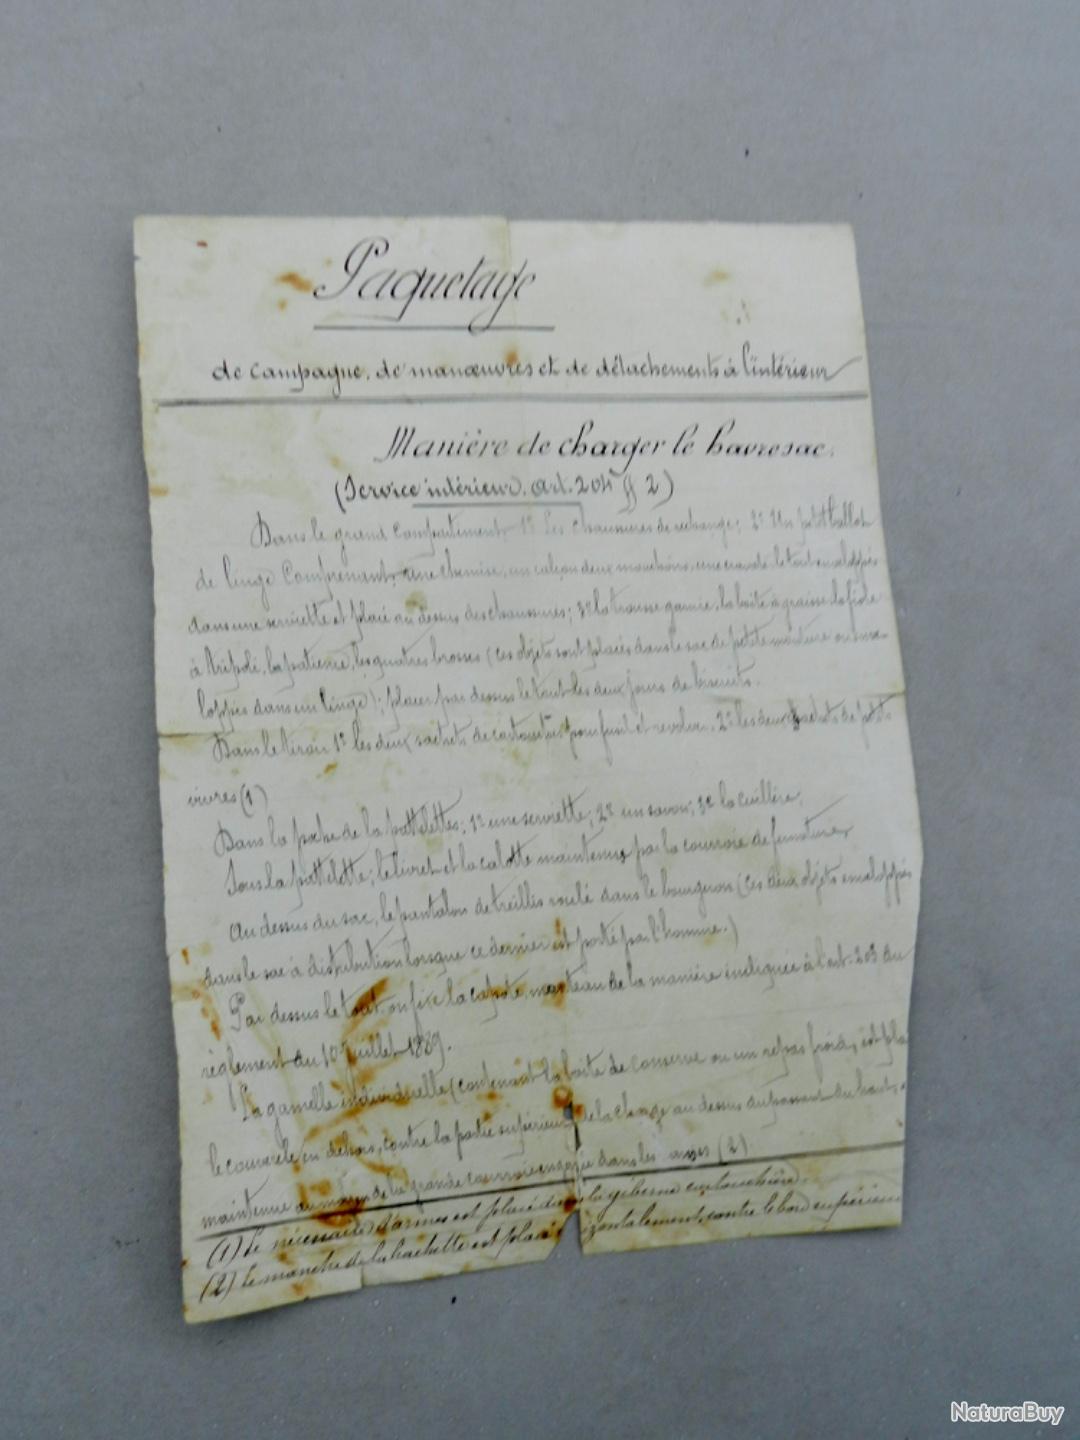 Paquetage
de campagne, de manœuvres et de détachements à l'intérieur
Manière de charger le havresac.
(Service intérieur. art. 204 § 2)
Dans le grand compartiment, 1º Les chaussures de rechange; 2º Un petit ballot
de linge comprenant, une chemise, un caleçon deux mouchoirs, une cravate le tout enveloppé
dans une serviette et placé au dessus des chaussures; 3º la trousse garnie, la boîte à graisse la fiole
à tripoli, la patience, les quatres brosses (ces objets sont placés dans le sac de petite monture ou enve-
loppés dans un linge); placer par dessus le tout les deux jours de biscuits.
Dans le tiroir 1º les deux sachets de cartouches pour fusil et revolver. 2º les deux sachets de petits
vivres (1)
Dans la poche de la pattelettes; 1º une serviette; 2º un savon; 3º la cuillère;
Sous la pattelette; le livret et la calotte maintenus par la courroie de fermeture,
Au dessus du sac, le pantalon de treillis roulé dans le bourgeron (ces deux objets enveloppés
dans le sac à distribution lorsque ce dernier est porté par l'homme.)
Par dessus le tout on fixe la capote, manteau de la manière indiquée à l'art. 203 du
règlement du 10 Juillet 1889.
La gamelle individuelle (contenant la boîte de conserve ou un repas froid, est pla
le couvercle en dehors, contre la partie supérieure de la charge au dessus du passant du haut,
maintenue au moyen de la grande courroie engagée dans les anses (2)
(1) Le nécessaire d'armes est placé dans la giberne cartouchière.
(2) Le manche de la hachette est placé horizontalement, contre le bord supérieur
NaturaBuy